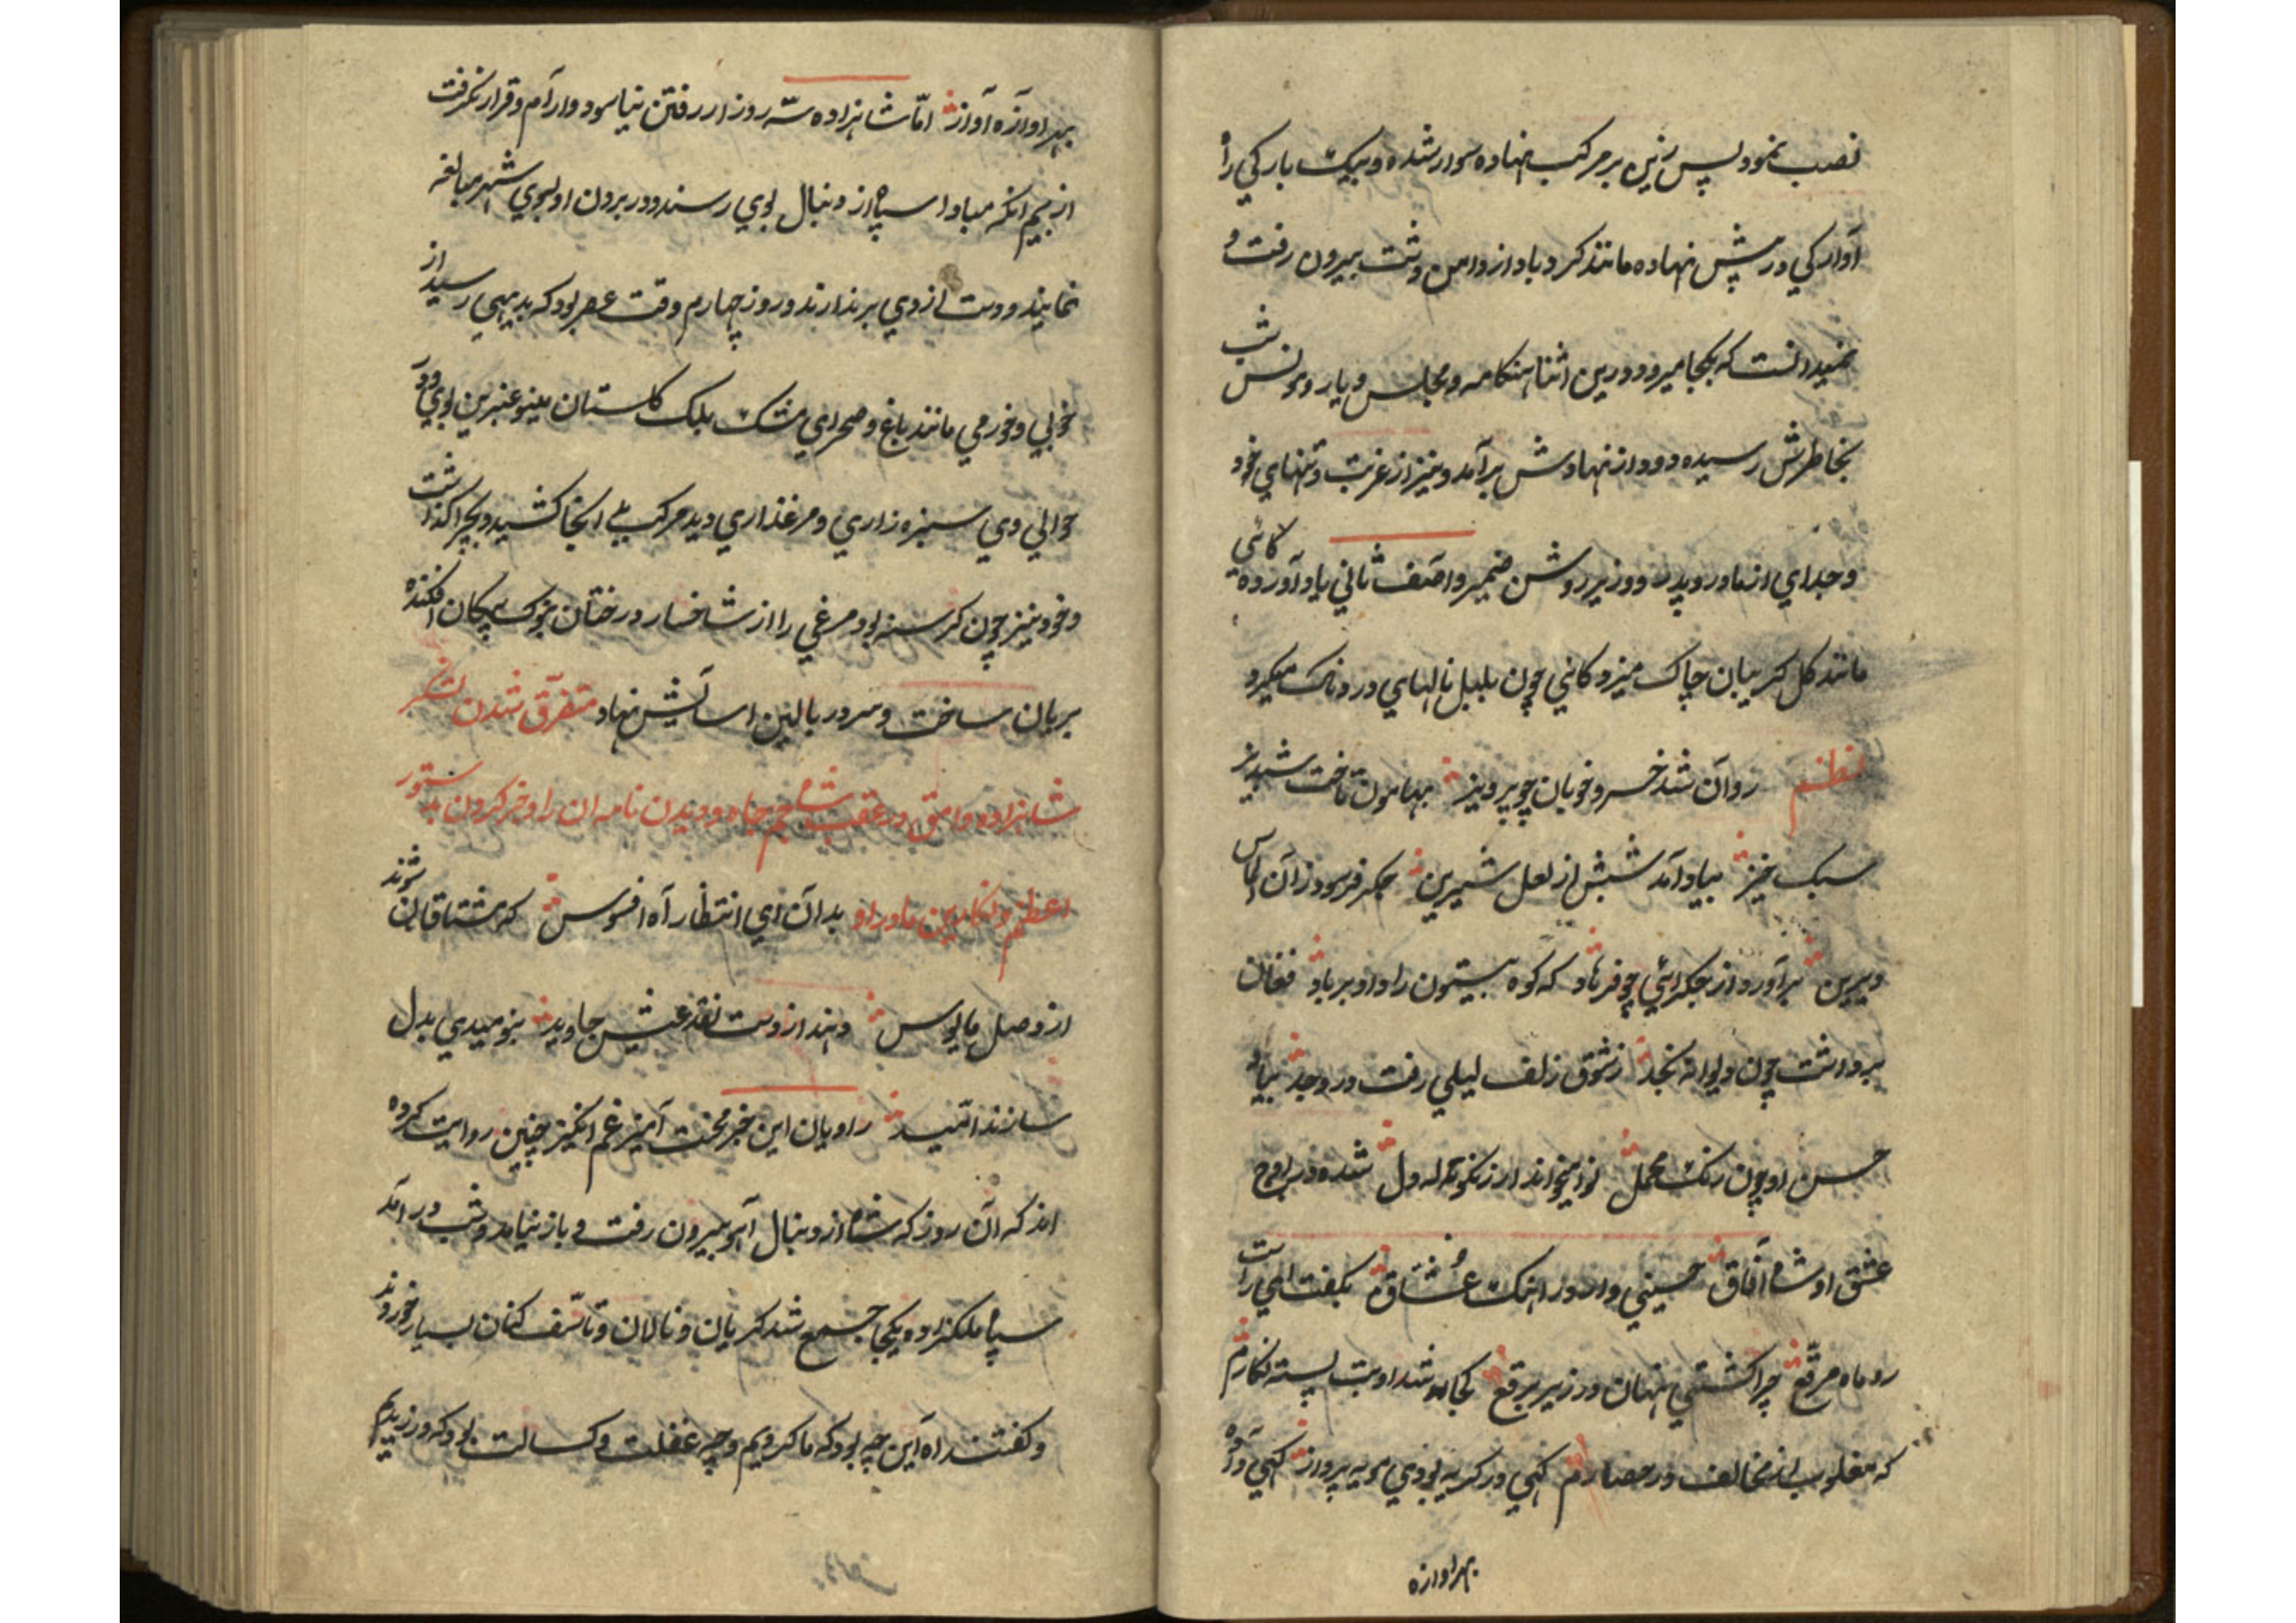 نصب نمود پس زین بر مرکب نهاده سوار شده و بیک بارکی را
آوارکی در پیش نهاده مانند کرد باد از دامن دشت بیرون رفت و
نمیدانست که بکجا میرود و درین اثنا هنکامه و مجلس و یار و مونس شب
بخاطرش رسیده دود از نهادش برآمد و نیز از غربت و تنهای خود
و جدای از مادر و پدر و وزیر روشن ضمیر و آصف ثانی یاد آورده کاهی
مانند کل کریبان چاک میزد و کاهی چون بلبل نالهای دردناک میکرد
نظم روان شد خسرو خوبان چو پرویز بهامون تاخت شبدیز
سبک خیز بیاد آمد شبش از لعل شیرین جکر فرسود زان الماس
دیرین برآورد از جکر آهی چو فرهاد که کوه بیستون را داد بر باد فغان
برداشت چون دیوانه نجد ز شوق زلف لیلی رفت در وجد بیاد
حسن او چون زنک محمل نوا میخواند از زنکوله دل شده در اوج
عشق او شاه آفاق حسینی وار در آهنک عشاق بکفت ای راست
رو ماه مرقع چرا کشتی نهان در زیر برقع کجا شد او بت بسته نکارم
که مغلوب از مخالف در حصارم کهی در کریه بودی مویه پرداز کهی دادی
بهر آوازه
بهر آوازه آواز اما شاهزاده سه روز از رفتن نیاسود و آرام و قرار نکرفت
از بیم آنکه مبادا سپاه از دنبال بوی رسند و در بردن او بسوی شهر مبالغه
نمایند و دست از وی برندارند و روز چهارم وقت عصر بود که بدیهی رسید از
خوبی و خورمی مانند باغ و صحرای مشک بلک کلستان مینو عنبرین بوی و در
حوالی وی سبزه زاری و مرغذاری دید مرکب بی آنجا کشید و بچرا کذاشت
و خود نیز چون کرسنه بود مرغی را از شاخسار درختان بنوک پیکان افکنده
بریان ساخت و سر در بالین آسایش نهاد متفرق شدن لشکر
شاهزاده وامق در عقب شاه جم جاه و دیدن نامه آن را و خبر کردن بدستور
اعظم و نکارین مادر او بدان ای انتظار آه افسوس که مشتاقان شوند
از وصل مایوس دهند از دست نقد عیش جاوید بنومیدی بدل
سازند امید راویان این خبر محنت آمیز غم انکیز چنین روایت کرده
اند که آن روز که شاه از دنبال آهو بیرون رفت و باز نیامد و شب درآمد
سپاه ملکزاده یکجا جمع شد کریان و نالان و تأسف کنان بسیار خوردند
و کفتند آه این چه بود که ما کردیم و چه غفلت و کسالت بود که ورزیدیم